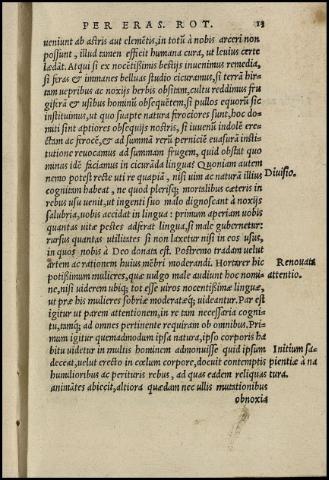 PER ERAS. ROT. 13
ueniunt ab astris aut elemētis, in totū à nobis arceri non
possunt, illud tamen efficit humana cura, ut leuius certe
lædāt. Atqui si ex nocētissimis bestijs inuenimus remedia,
si feras & immanes belluas studio cicuramus, si terrā hir
tam uepribus ac noxijs herbis obsitam, cultu reddimus fru
giferā & usibus hominū obsequētem, si pullos equorū sic
instituimus, ut quo suapte natura ferociores sunt, hoc do⸗
miti sint aptiores obsequijs nostris, si iuuenū indolē erec⸗
tam ac ferocē, & ad summā rerū perniciē euasurā institu
tutione reuocamus ad summam frugem, quid obstat quo
minus idē faciamus in cicurāda lingua? Quoniam autem
nemo potest recte uti re quapiā, nisi uim ac naturā illius Diuisio.
cognitam habeat, ne quod plerisq; mortalibus cæteris in
rebus usu uenit, ut ingenti suo malo dignoscant à noxijs
salubria, nobis accidat in lingua: primum aperiam uobis
quantas uitæ pestes adferat lingua, si male gubernetur:
rursus quantas utilitates si non laxetur nisi in eos usus,
in quos nobis à Deo donata est. Postremo tradam uelut
artem ac rationem huius mēbri moderandi. Hortarer hic Renouata
potißimum mulieres, quæ uulgo male audiunt hoc nomi⸗ attentio.
ne, nisi uiderem ubiq; tot esse uiros nocentißimæ linguæ,
ut præ his mulieres sobriæ moderatæq; uideantur. Par est
igitur ut parem attentionem, in re tam necessaria cogni⸗
tu, tamq; ad omnes pertinente requiram ob omnibus. Pri⸗
mum igitur quemadmodum ipsa natura, ipso corporis ha
bitu uidetur in multis hominem admonuisse quid ipsum Initium sa⸗
deceat, uelut erecto in cœlum corpore, docuit contemptis pientiæ à na
humilioribus ac perituris rebus, ad quas eadem reliquas tura.
animātes abiecit, altiora quædam nec ullis mutationibus
obnoxia